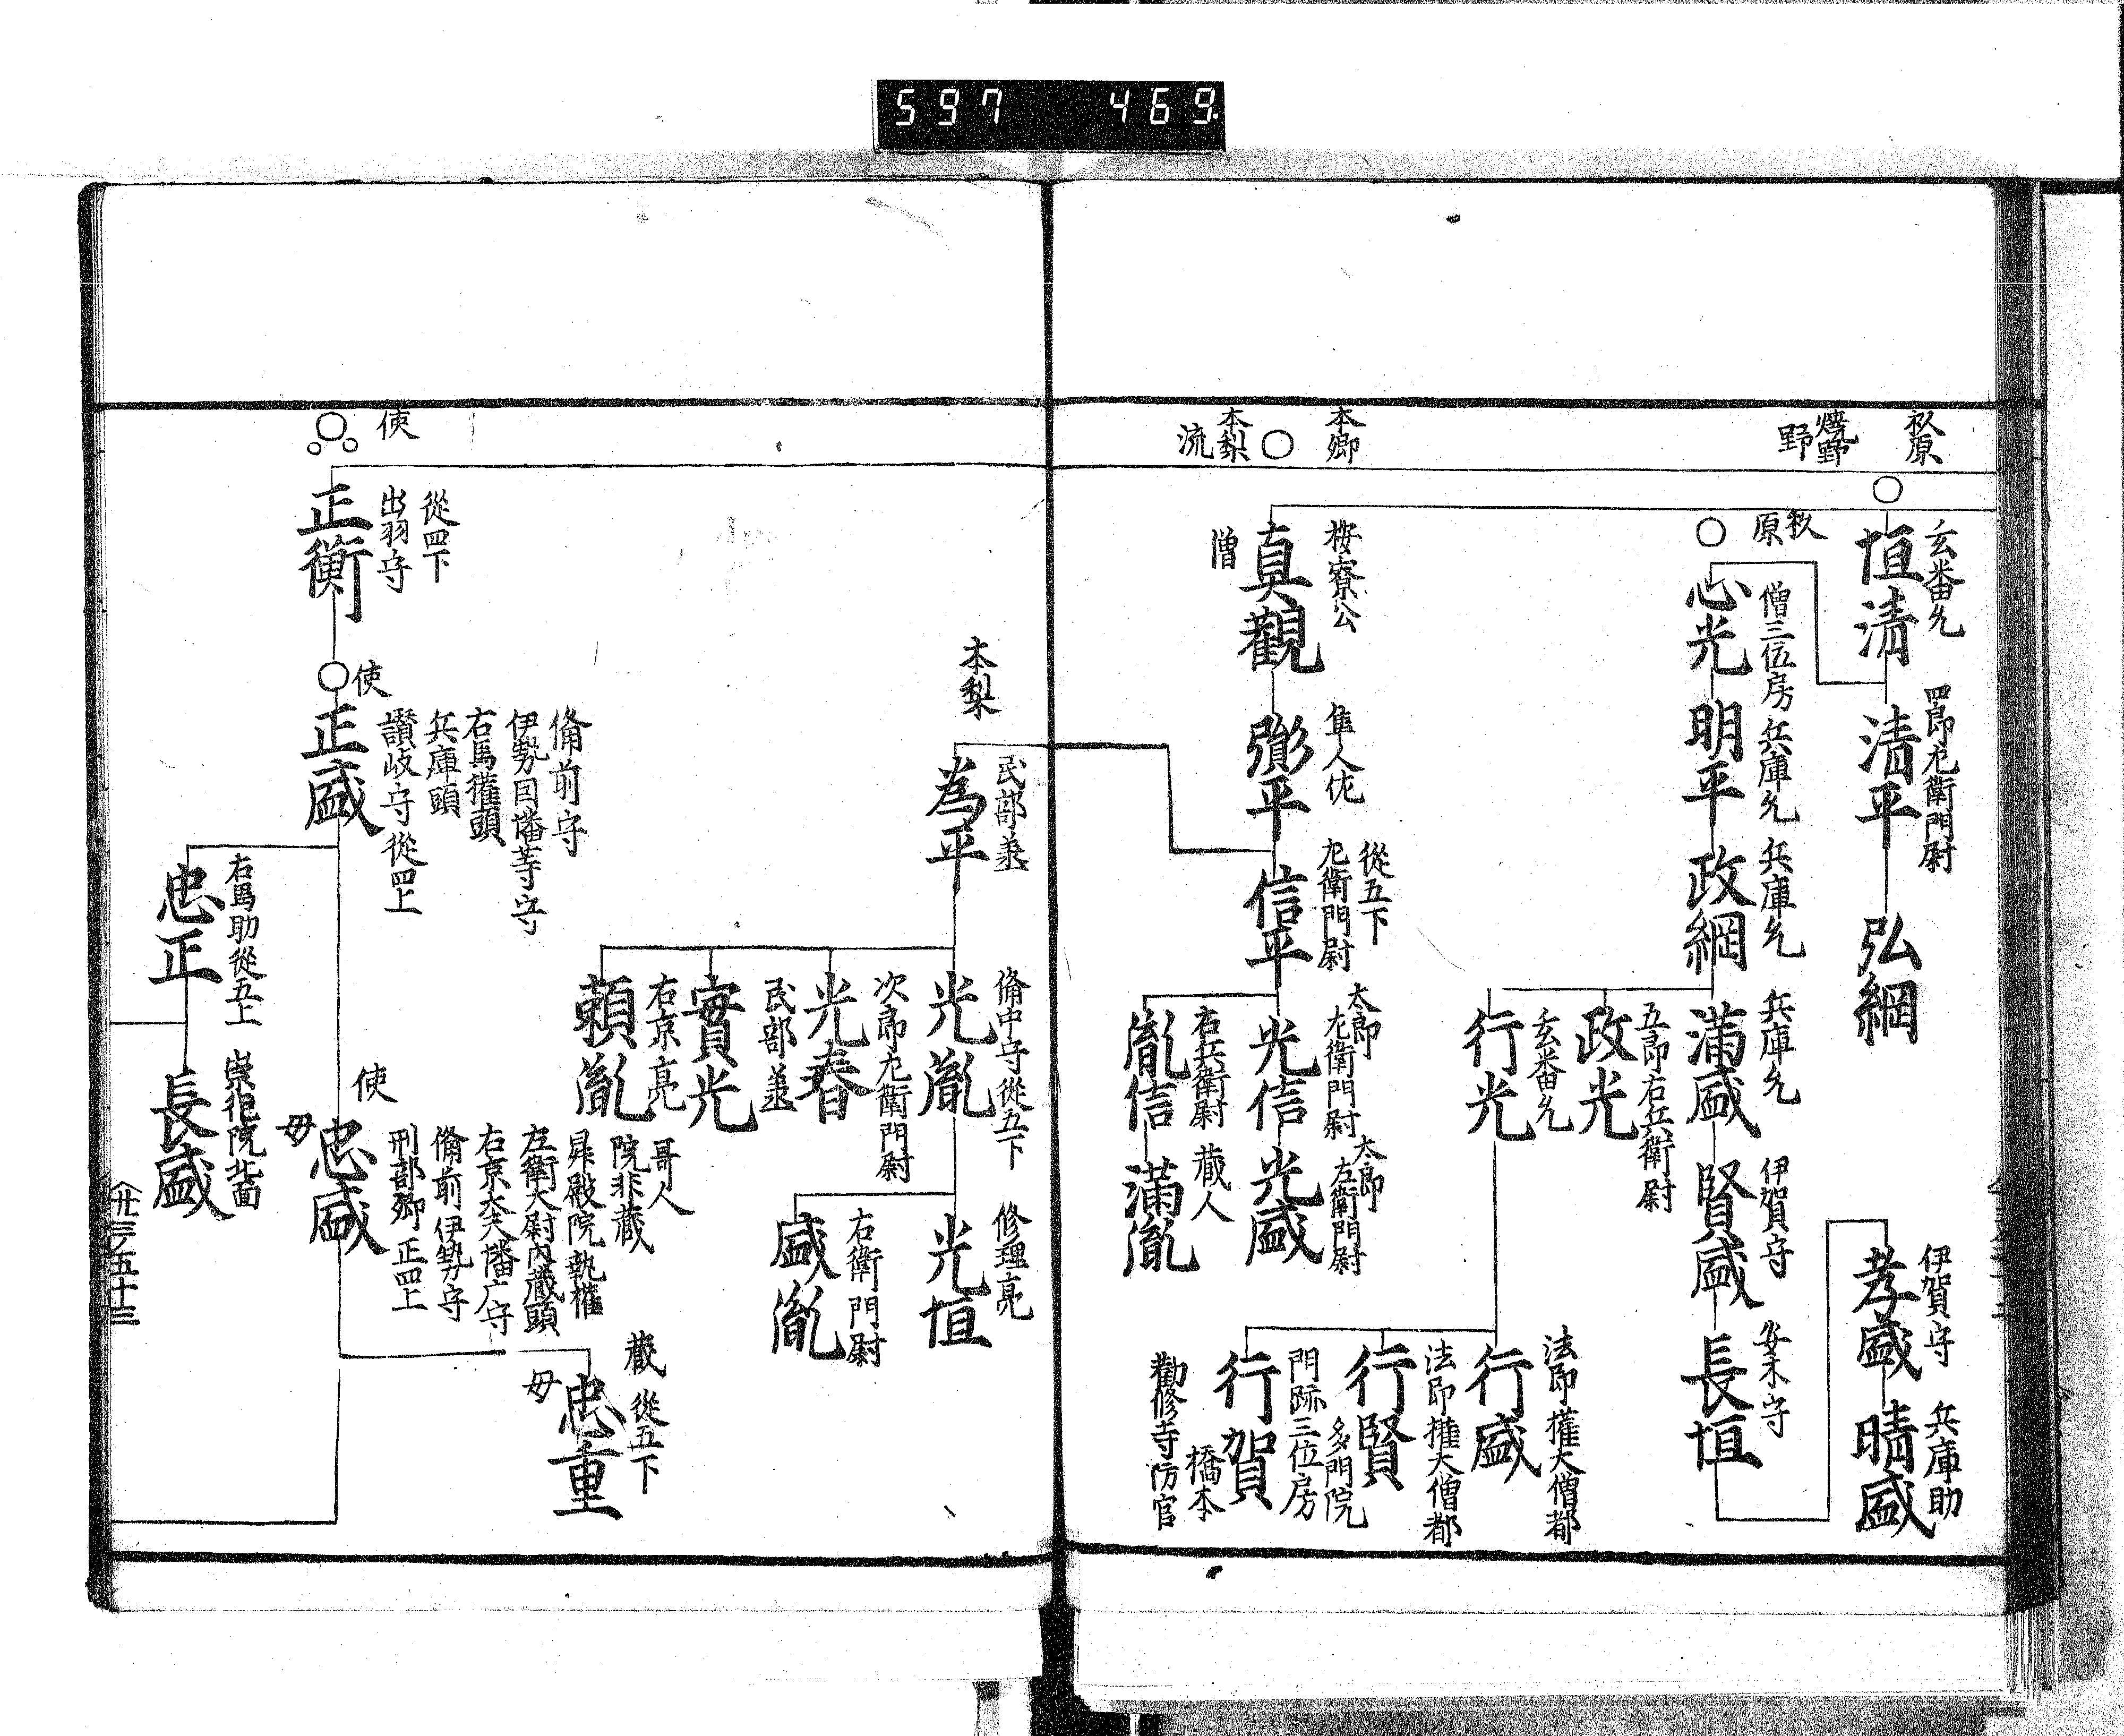 597 469.
杦原
玄番允
恒清
四郎左衛門尉
清平
弘綱
伊賀守
孝盛
兵庫助
晴盛
野
杦
原
僧三位房
心光
兵庫允
明平
兵庫允
政綱
兵庫允
満盛
伊賀守
賢盛
長恒
五郎右兵衛尉
政光
玄番允
行光
法印権大僧都
行盛
法印権大僧都
行賢
多門院
門跡三位房
行賀
橋本
勸修寺防官
本郷
本梨
流
桜寮公
真觀
僧
隼人佐
彌平
從五下
左衛門尉
信平
太郎
左衛門尉
光信
太郎
左衛門尉
光盛
右兵衛尉
胤信
蔵人
満胤
本梨
民部丞
為平
備中守從五下
光胤
修理亮
光恒
右衛門尉
盛胤
次郎左衛門尉
光春
民部丞
實光
右京亮
頼胤
使
從四下
出羽守
正衡
使
備前守
伊勢因幡等守
右馬権頭
兵庫頭
讃岐守從四上
正盛
使
哥人
院非蔵
昇殿院執権
左衛大尉内蔵頭
右京大夫播广守
備前伊勢守
刑部卿正四上
忠盛
母
蔵從五下
忠重
母
右馬助從五上
忠正
崇徳院北面
長盛
〈廿三ノ五十三